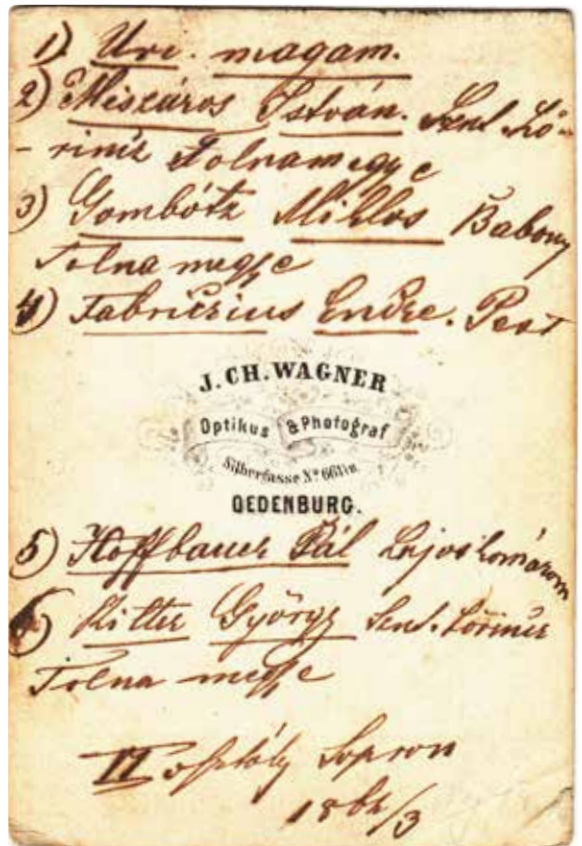 1) Uri. magam.
2) Miszáros István. Szent Lő-
- riniz Tolnamegye
3) Gombótz Miklos Babony
Tolna megye
4) Fabriczius Endre. Pest
J. CH. WAGNER
Optikus & Photograf
Silbergasse Nº
OEDENBURG.
5) Hoffbauer Pál Lajoskomárom
6) Ritter György Sent. Lőrincz
Tolna megye
II osztály Sopron
1862/3